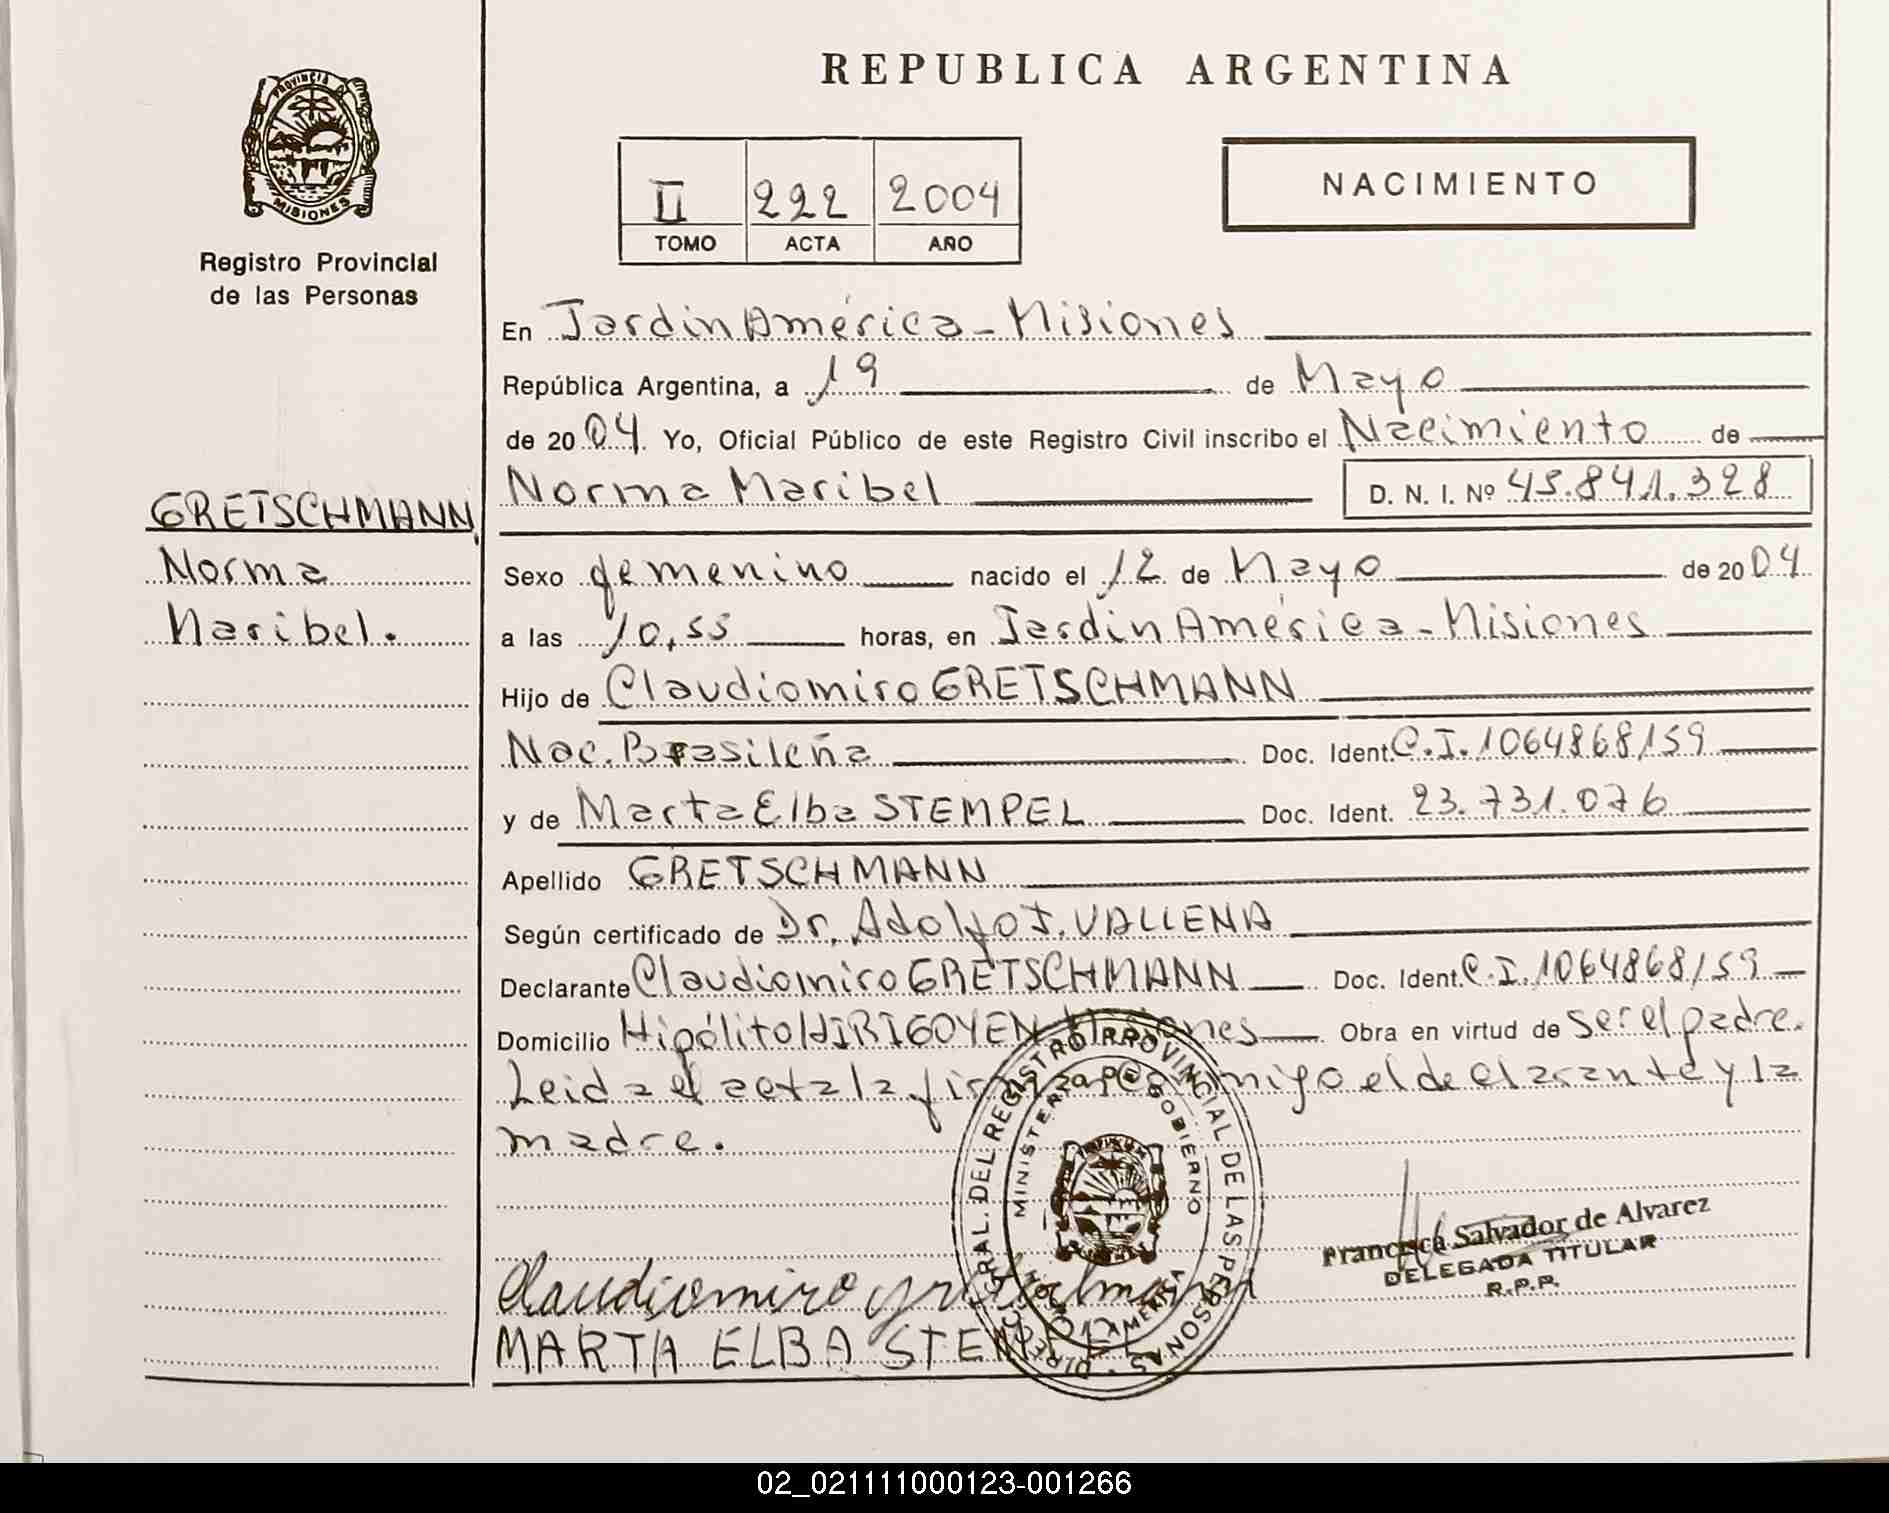 REPUBLICA ARGENTINA
PROVINCIA DE MISIONES
Registro Provincial
de las Personas
II 222 2004
TOMO ACTA AÑO
NACIMIENTO
En Jardin América - Misiones
República Argentina, a 19 de Mayo
de 2004. Yo, Oficial Público de este Registro Civil inscribo el Nacimiento de
Norma Maribel D. N. I. Nº 45.841.328
GRETSCHMANN,
Norma
Maribel.
Sexo femenino nacido el 12 de Mayo de 2004
a las 10,55 horas, en Jardin América - Misiones
Hijo de Claudiomiro GRETSCHMANN
Nac. Brasileña Doc. Ident. C.I. 1064868159
y de Marta Elba STEMPEL Doc. Ident. 23.731.076
Apellido GRETSCHMANN
Según certificado de Dr. Adolfo J. VALLENA
Declarante Claudiomiro GRETSCHMANN Doc. Ident. C.I. 1064868159
Domicilio Hipólito HIRIGOYEN Misiones Obra en virtud de ser el padre.
Leida el acta la firman conmigo el declarante y la
madre.
DIRECC. GRAL. DEL REGISTRO PROVINCIAL DE LAS PERSONAS
MINISTERIO DE GOBIERNO
AMERICA
Francisca Salvador de Alvarez
DELEGADA TITULAR
R.P.P.
Claudiomiro
MARTA ELBA STEMPEL
02_021111000123-001266